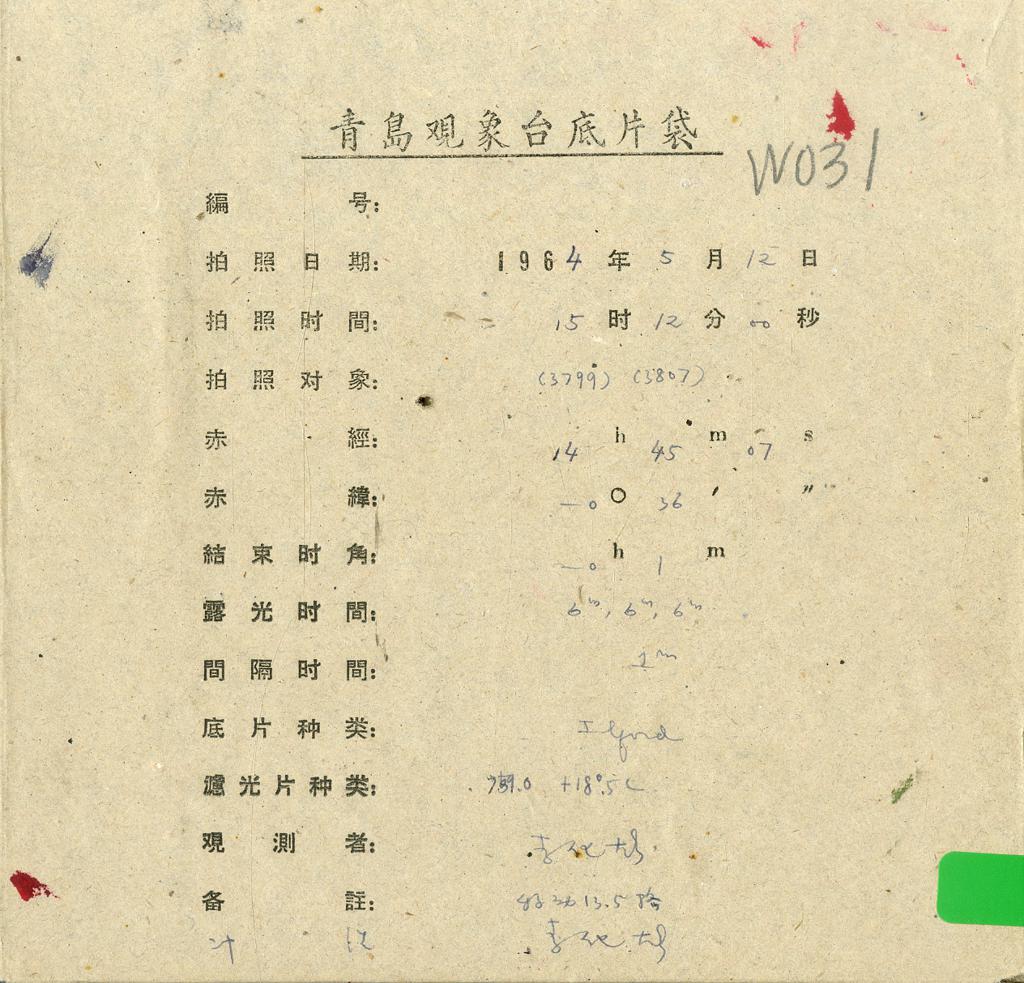 青島观象台底片袋
W031
編 号:
拍照日期: 1964年5月12日
拍照时間: 15时12分00秒
拍照对象: (3799) (3807)
赤 經: 14h 45m 07s
赤 緯: -0° 36′ ″
結束时角: -0h 1m
露光时間: 6m, 6m, 6m
間隔时間: 1m
底片种类: Ilford
濾光片种类: +18°.5C
观測者: 李
备 註: 13.5
冲 洗 李